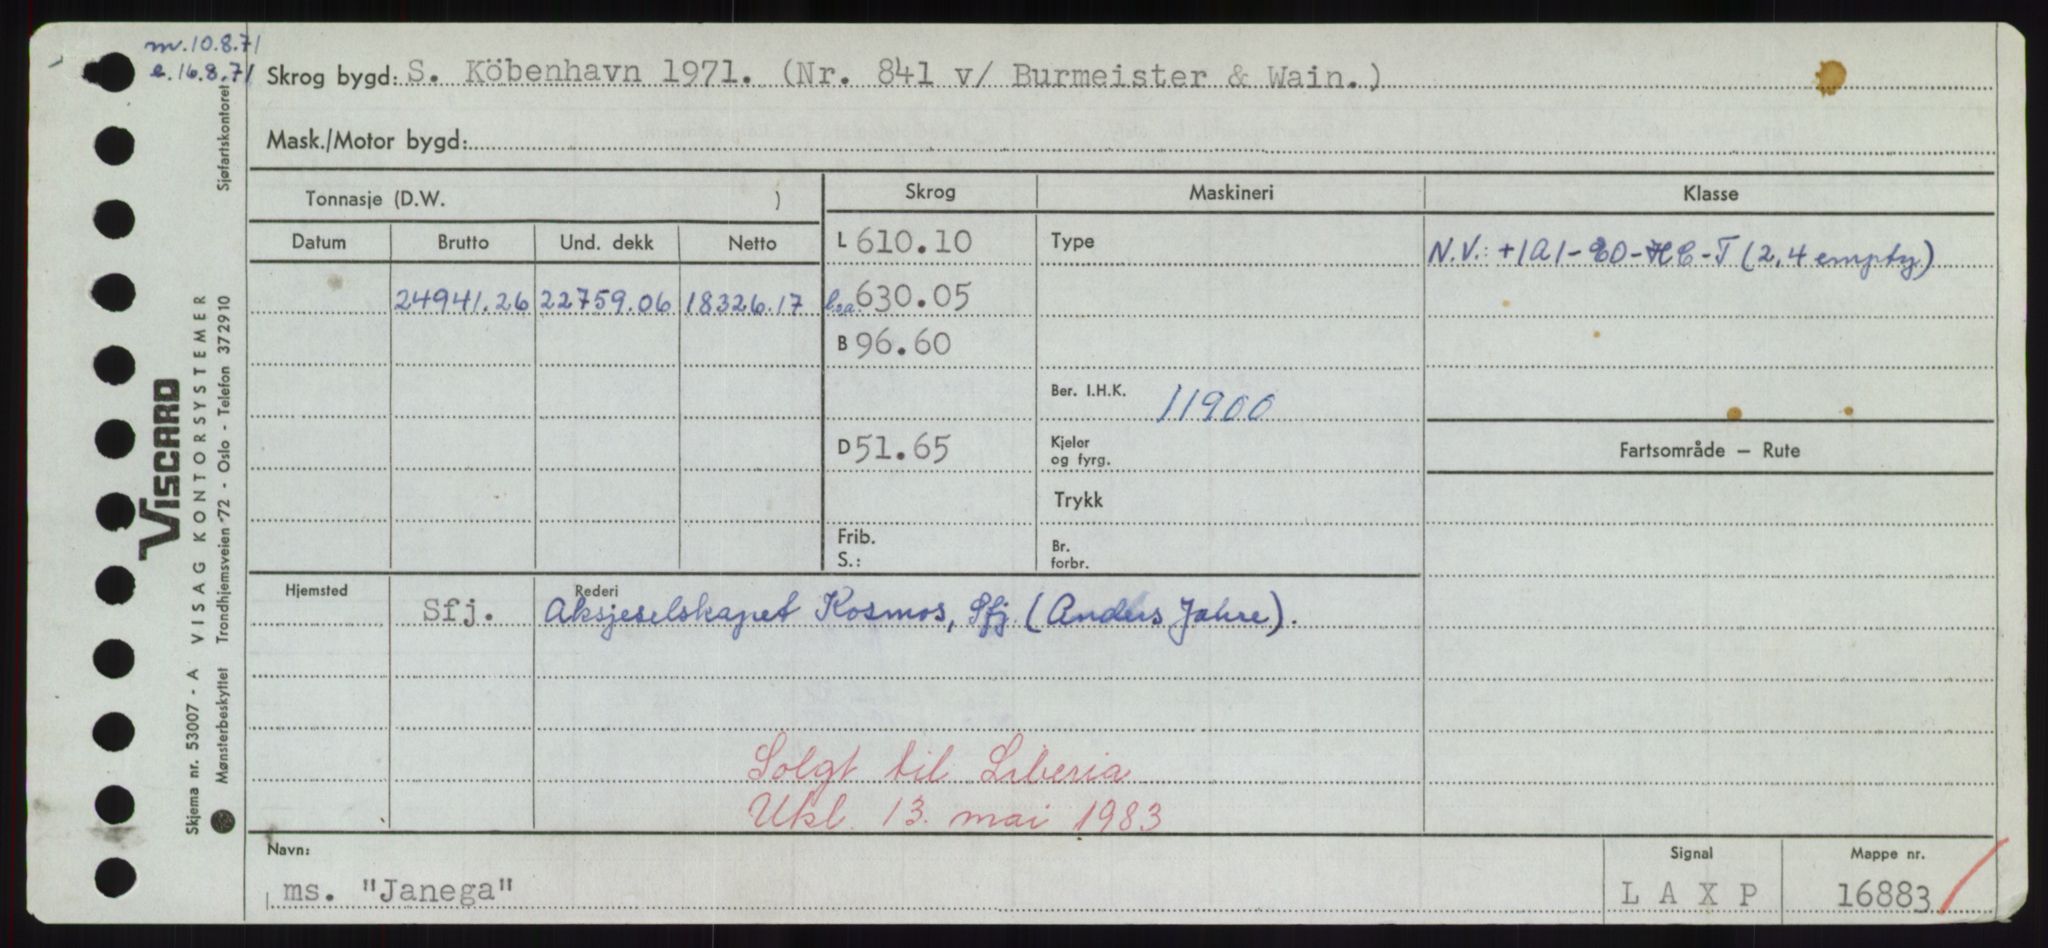 m. 10.8.71
e. 16.8.71
Skrog bygd: S. Köbenhavn 1971. (Nr. 841 v/ Burmeister & Wain.)
Mask./Motor bygd:
Tonnasje (D.W. )
Skrog Maskineri Klasse
Datum Brutto Und. dekk Netto
L 610.10 Type
N.V.: +1A1-EO-HC-T (2,4 empty)
24941.26 22759.06 18326.17
l.o.a. 630.05
B 96.60
Ber. I.H.K. 11900
D 51.65
Kjeler
og fyrg.
Fartsområde — Rute
Trykk
Frib.
S.:
Br.
forbr.
Hjemsted Rederi
Sfj. Aksjeselskapet Kosmos, Sfj. (Anders Jahre).
Solgt til Liberia
Ukl. 13. mai 1983
Navn: Signal Mappe nr.
ms. "Janega" LAXP 16883
Skjema nr. 53007 - A VISAG KONTORSYSTEMER
VISCARD
Mønsterbeskyttet Trondhjemsveien 72 - Oslo - Telefon 372910 Sjøfartskontoret